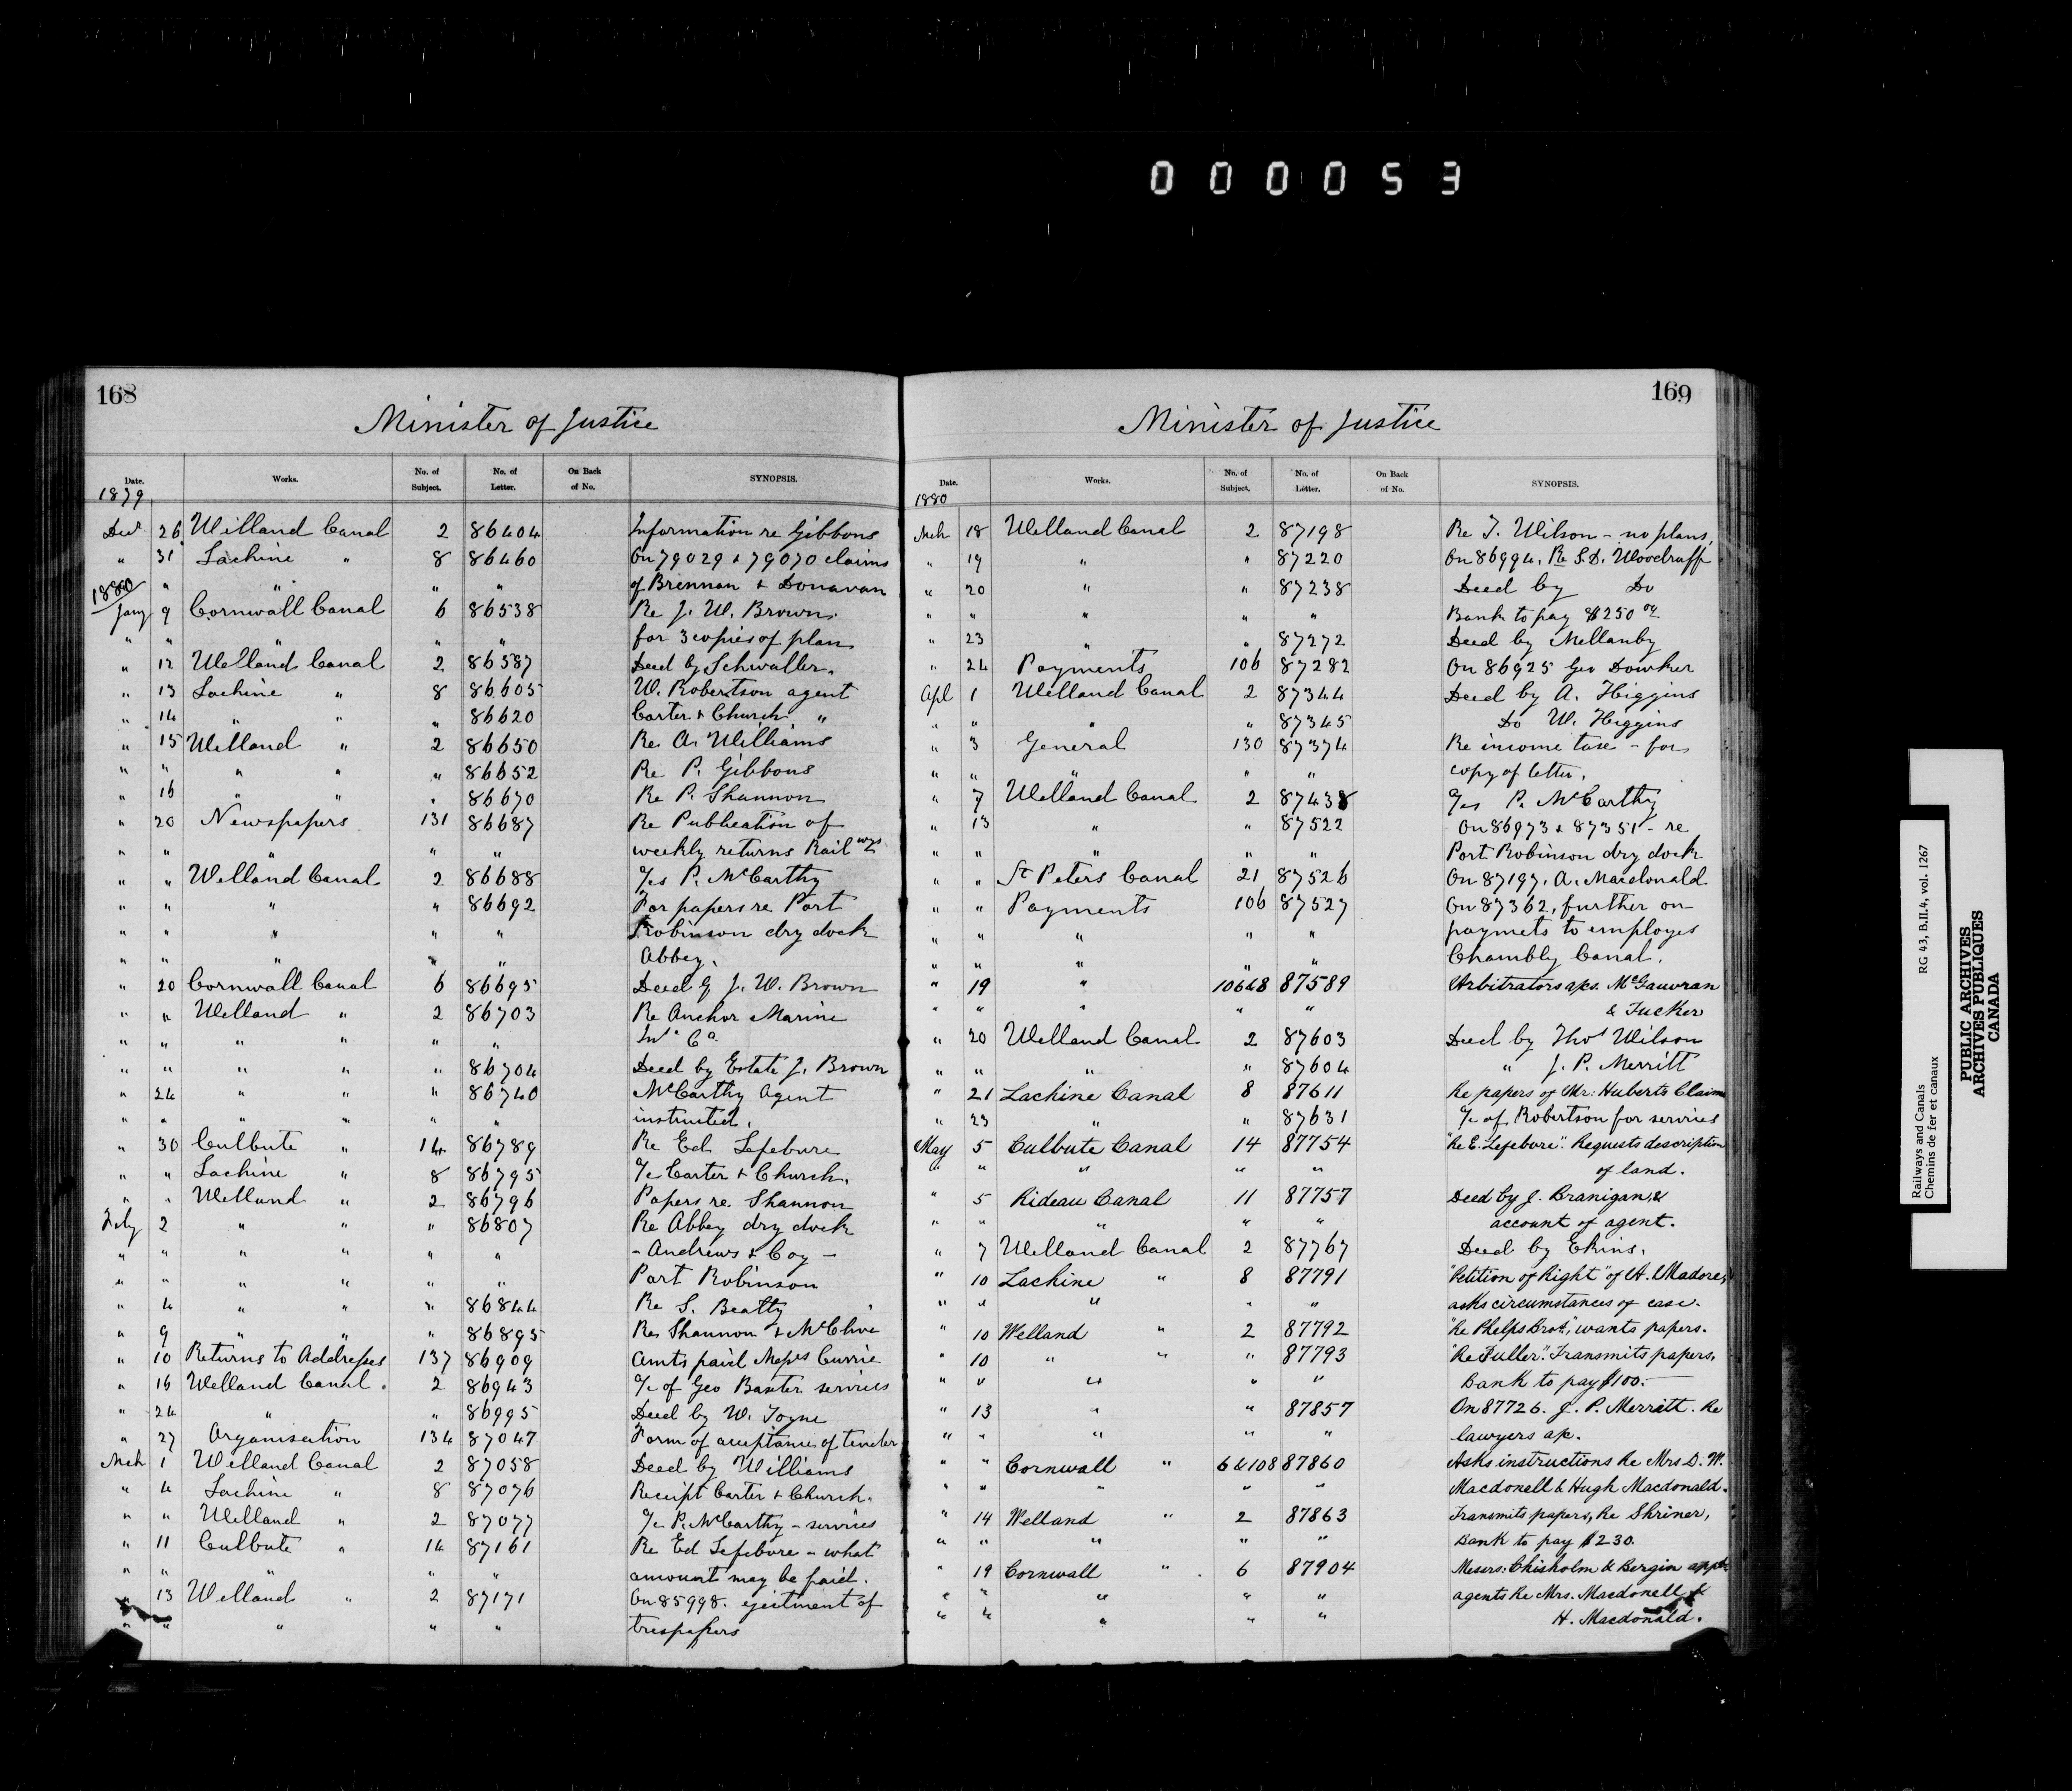 000053
168
Minister of Justice
Date. Works. No. of Subject. No. of Letter. On Back of No. SYNOPSIS.
1879
Decr 26 Welland Canal 2 86404 Information re Gibbons
" 31 Lachine " 8 86460 On 79029 & 79070 claims
1880 " " " " of Brennan & Donavan
Jany 9 Cornwall Canal 6 86538 Re J. W. Brown.
" " " " " for 3 copies of plan
" 12 Welland Canal 2 86587 Deed by Schwaller.
" 13 Lachine " 8 86605 W. Robertson agent
" 14 " " " 86620 Carter & Church "
" 15 Welland " 2 86650 Re A. Williams
" " " " " 86652 Re P. Gibbons
" 16 " " " 86670 Re P. Shannon
" 20 Newspapers 131 86687 Re Publication of
" " " " " weekly returns Railwys
" " Welland Canal 2 86688 %s P. McCarthy
" " " " 86692 For papers re Port
" " " " " Robinson dry dock
" " " " " Abbey.
" 20 Cornwall Canal 6 86695 Deed of J. W. Brown
" " Welland " 2 86703 Re Anchor Marine
" " " " " " Ins. Co.
" " " " " 86704 Deed by Estate J. Brown
" 24 " " " 86740 McCarthy Agent
" " " " " " instructed.
" 30 Culbute " 14 86789 Re Ed. Lefebure
" " Lachine " 8 86795 %s Carter & Church.
" " Welland " 2 86796 Papers re. Shannon
Feby 2 " " " 86807 Re Abbey dry dock
" " " " " " - Andrews & Coy -
" " " " " " Port Robinson
" 4 " " " 86844 Re S. Beatty
" 9 " " " 86895 Re Shannon & McClive
" 10 Returns to Addresses 137 86909 Amts paid Messrs Currie
" 16 Welland Canal. 2 86943 %c of Geo Baxter services
" 24 " " 86995 Deed by W. Toyne
" 27 Organisation 134 87047 Form of acceptance of tender
Mch 1 Welland Canal 2 87058 Deed by Williams
" 4 Lachine " 8 87076 Receipt Carter & Church.
" " Welland " 2 87077 %c P. McCarthy - services
" 11 Culbute " 14 87161 Re Ed Lefebure - what
" " " " " amount may be paid.
" 13 Welland " 2 87171 On 85998. ejectment of
" " " " " trespassers
169
Minister of Justice
Date. Works. No. of Subject. No. of Letter. On Back of No. SYNOPSIS.
1880
Mch 18 Welland Canal 2 87198 Re T. Wilson - no plans,
" 19 " " 87220 On 86994. Re S. D. Woodruff
" 20 " " 87238 Deed by Do
" " " " " Bank to pay $250 00
" 23 " " 87272 Deed by Mellanby
" 24 Payments 106 87282 On 86925 Geo Dowker
Apl 1 Welland Canal 2 87344 Deed by A. Higgins
" " " " 87345 Do W. Higgins
" 3 General 130 87374 Re income tax - for
" " " " " copy of letter.
" 7 Welland Canal 2 87438 %s P. McCarthy
" 13 " " 87522 On 86973 & 87351 - re
" " " " " Port Robinson dry dock
" " St Peters Canal 21 87526 On 87197. A. Macdonald
" " Payments 106 87527 On 87362, further on
" " " " " paymets to employes
" " " " " Chambly Canal.
" 19 " 106&8 87589 Arbitrators a/cs. McGauvran
" " " " " & Tucker
" 20 Welland Canal 2 87603 Deed by Thos Wilson
" " " " 87604 " J. P. Merritt
" 21 Lachine Canal 8 87611 Re papers of Mr. Huberts Claim
" 23 " " 87631 %c of Robertson for services
May 5 Culbute Canal 14 87754 "Re E. Lefebure". Requests description
" " " " " of land.
" 5 Rideau Canal 11 87757 Deed by J. Branigan, &
" " " " " account of agent.
" 7 Welland Canal 2 87767 Deed by Ekins.
" 10 Lachine " 8 87791 "Petition of Right" of A. Madore,
" " " " " asks circumstances of case.
" 10 Welland " 2 87792 "Re Phelps Bros", wants papers.
" 10 " " " 87793 "Re Fuller". Transmits papers.
" " " " " Bank to pay $100.—
" 13 " " 87857 On 87726. J. P. Merritt. Re
" " " " " lawyers a/c.
" " Cornwall " 6&108 87860 Asks instructions Re Mrs D. W.
" " " " " Macdonell & Hugh Macdonald.
" 14 Welland " 2 87863 Transmits papers, Re Shriner,
" " " " " Bank to pay $230.
" 19 Cornwall " 6 87904 Messrs: Chisholm & Bergin
" " " " " agents Re Mrs. Macdonell &
" " " " " H. Macdonald.
Railways and Canals RG 43, B.II.4, vol. 1267
Chemins de fer et canaux
PUBLIC ARCHIVES
ARCHIVES PUBLIQUES
CANADA